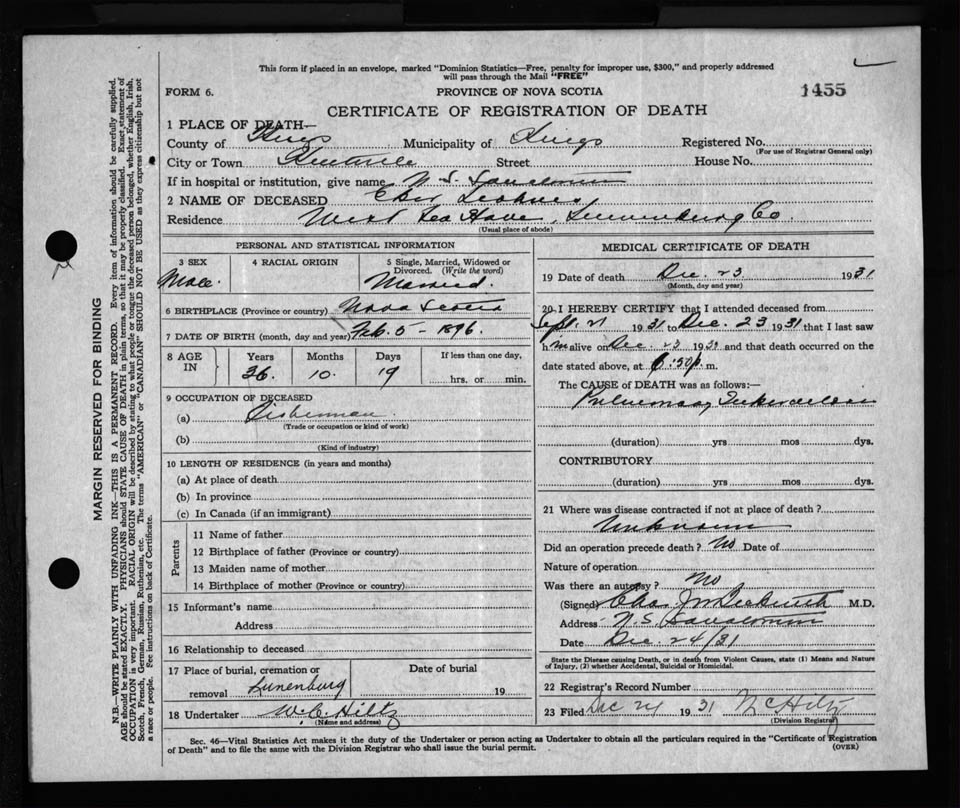 This form if placed in an envelope, marked "Dominion Statistics—Free, penalty for improper use, $300," and properly addressed
will pass through the Mail "FREE"
FORM 6.
PROVINCE OF NOVA SCOTIA
1455
CERTIFICATE OF REGISTRATION OF DEATH
1 PLACE OF DEATH—
County of Kings Municipality of Kings Registered No.
(For use of Registrar General only)
City or Town Kentville Street House No.
If in hospital or institution, give name N. S. Sanatorium
2 NAME OF DECEASED
Residence West La Have, Lunenburg Co.
(Usual place of abode)
PERSONAL AND STATISTICAL INFORMATION
3 SEX 4 RACIAL ORIGIN 5 Single, Married, Widowed or
Divorced. (Write the word)
Male. Married.
6 BIRTHPLACE (Province or country) Nova Scotia
7 DATE OF BIRTH (month, day and year) Feb. 5 - 1896.
8 AGE IN Years Months Days If less than one day,
36. 10. 19 hrs. or min.
9 OCCUPATION OF DECEASED
(a) Fisherman.
(Trade or occupation or kind of work)
(b)
(Kind of industry)
10 LENGTH OF RESIDENCE (in years and months)
(a) At place of death
(b) In province
(c) In Canada (if an immigrant)
Parents
11 Name of father
12 Birthplace of father (Province or country)
13 Maiden name of mother
14 Birthplace of mother (Province or country)
15 Informant's name
Address
16 Relationship to deceased
17 Place of burial, cremation or Date of burial
removal Lunenburg 19
18 Undertaker W. C. Hiltz
(Name and address)
MEDICAL CERTIFICATE OF DEATH
19 Date of death Dec. 23 1931
(Month, day and year)
20 I HEREBY CERTIFY that I attended deceased from
Sept. 21 1931 to Dec. 23 1931 that I last saw
h im alive on Dec. 23 193 and that death occurred on the
date stated above, at 50 p. m.
The CAUSE of DEATH was as follows:—
Pulmonary Tuberculosis
(duration) yrs mos dys.
CONTRIBUTORY
(duration) yrs mos dys.
21 Where was disease contracted if not at place of death?
Unknown
Did an operation precede death? No Date of
Nature of operation
Was there an autopsy? No
(Signed) Chas. J. M.D.
Address N. S. Sanatorium
Date Dec. 24/31
State the Disease causing Death, or in death from Violent Causes, state (1) Means and Nature
of Injury, (2) whether Accidental, Suicidal or Homicidal.
22 Registrar's Record Number
23 Filed Dec 24 1931 Hiltz
(Division Registrar)
Sec. 46—Vital Statistics Act makes it the duty of the Undertaker or person acting as Undertaker to obtain all the particulars required in the "Certificate of Registration
of Death" and to file the same with the Division Registrar who shall issue the burial permit.
(OVER)
MARGIN RESERVED FOR BINDING
N.B.—WRITE PLAINLY WITH UNFADING INK—THIS IS A PERMANENT RECORD. Every item of information should be carefully supplied.
AGE should be stated EXACTLY. PHYSICIANS should STATE CAUSE OF DEATH in plain terms, so that it may be properly classified. Exact statement of
OCCUPATION is very important. RACIAL ORIGIN will be described by stating to what people or tongue the deceased person belonged, whether English, Irish,
Scotch, French, German, Russian, Ruthenian, etc. The terms "AMERICAN" or "CANADIAN" SHOULD NOT BE USED as they express citizenship but not
a race or people. Fee instructions on back of Certificate.